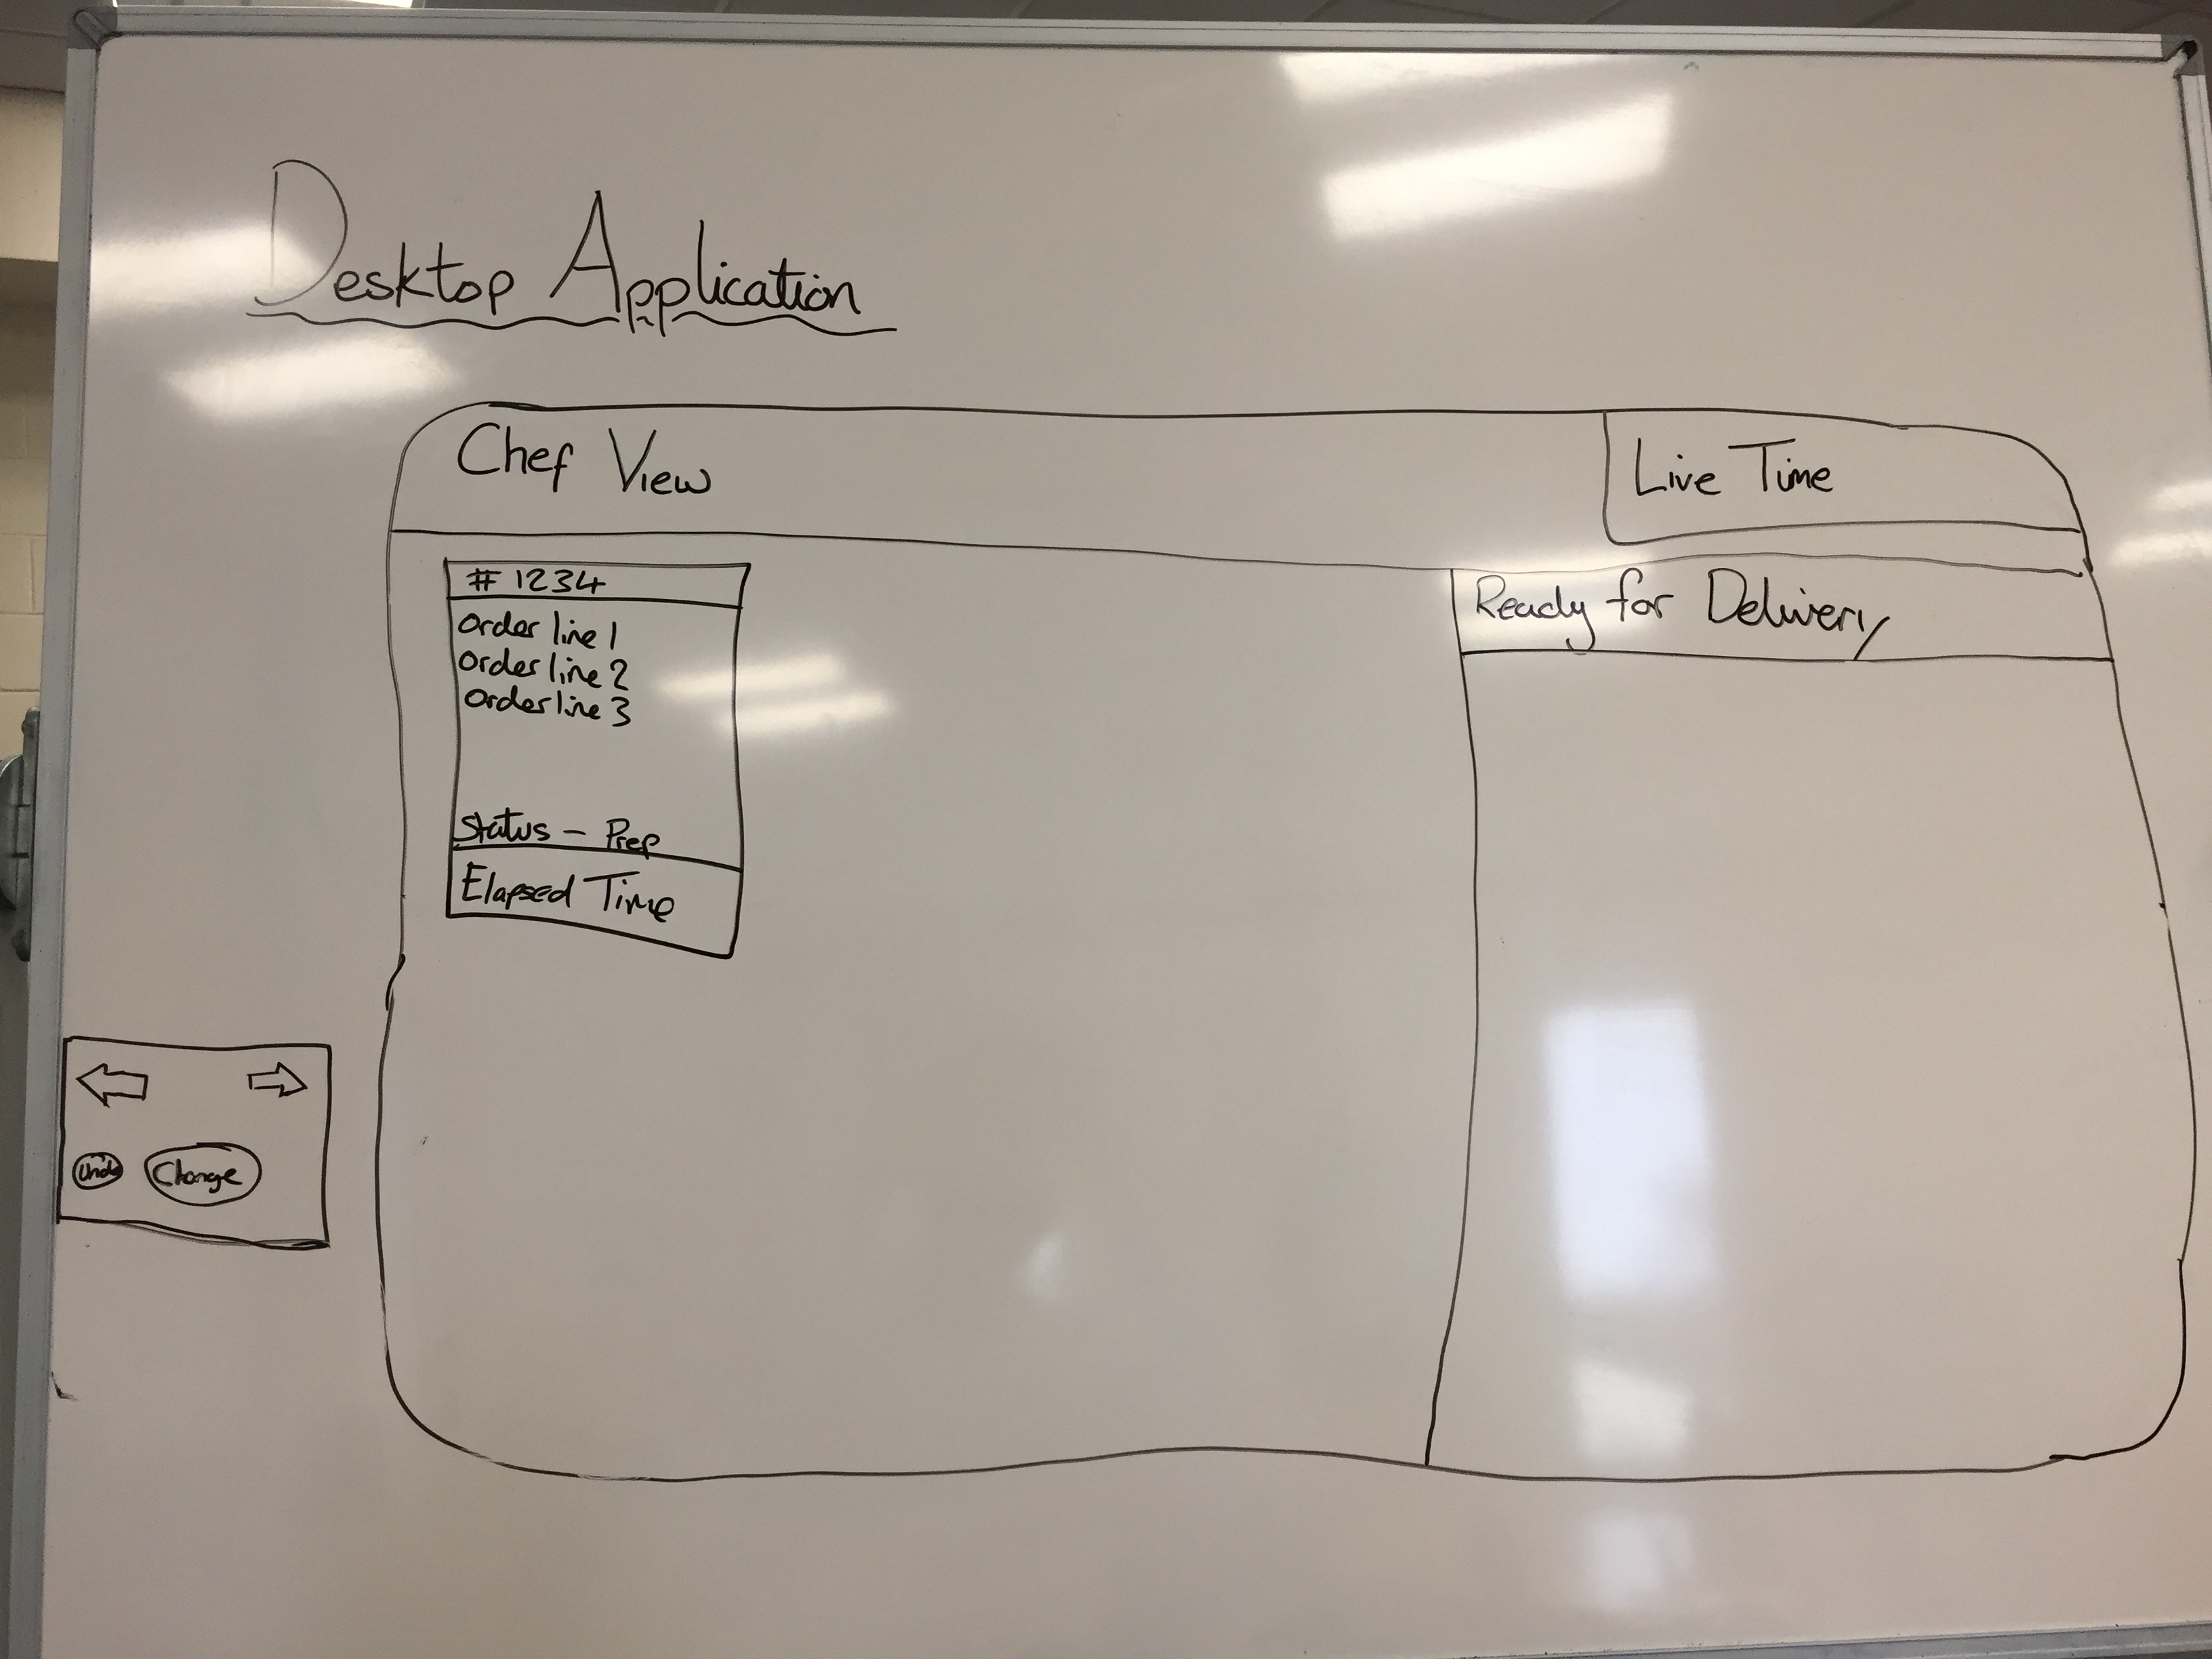 Desktop Application
Chef View
Live Time
# 1234
Order line 1
Order line 2
Order line 3
Status - Prep
Elapsed Time
Ready for Delivery
Undo
Change